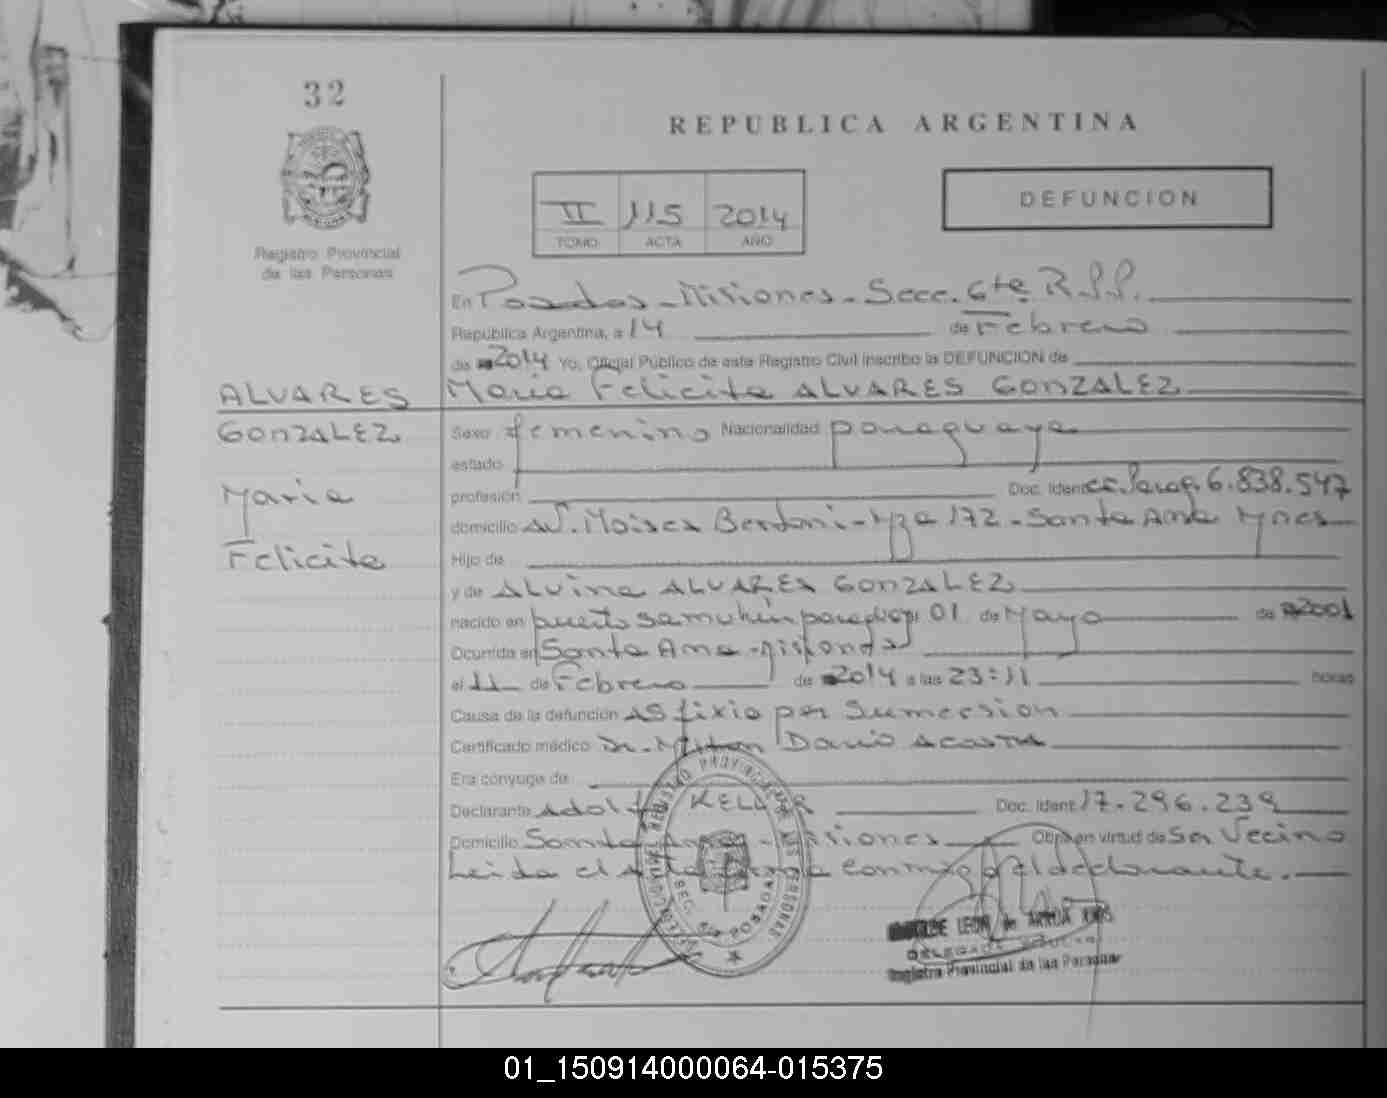 32
REPUBLICA ARGENTINA
DEFUNCION
II 115 2014
TOMO ACTA AÑO
Registro Provincial
de las Personas
En Posadas - Misiones - Secc. 6ta R.P.P.
República Argentina, a 14 de Febrero
de 2014 Yo, Oficial Público de este Registro Civil inscribo la DEFUNCION de
Maria Felicita ALVARES GONZALEZ
ALVARES
GONZALEZ
Maria
Felicita
Sexo femenino Nacionalidad paraguaya
estado
profesión Doc. Ident. 6.838.547
domicilio Av. Moises Bertoni - Mza 172 - Santa Ana Mnes
Hijo de
y de Alvina ALVARES GONZALEZ
nacido en puerto 01 de Mayo de 2001
Ocurrida en Santa Ana - Misiones
el 11 de Febrero de 2014 a las 23:11 horas
Causa de la defunción Asfixia por Sumersion
Certificado médico Dr. Dario Acosta
Era cónyuge de
Declarante Adolfo KELLER Doc. Ident. 17.296.239
Domicilio Santa Ana - Misiones Obra en virtud de Ser Vecino
Leida el Acta firma conmigo el declarante.
REGISTRO PROVINCIAL DE LAS PERSONAS
POSADAS
LEON de
Registro Provincial de las Personas
01_150914000064-015375